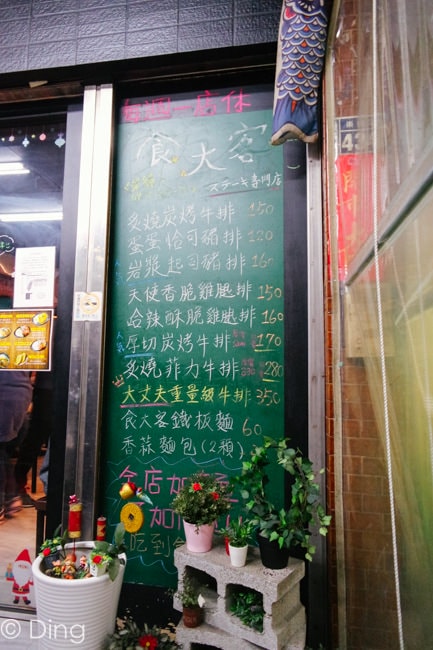 每週一店休
食大客
ステーキ專門店
炙燒炭烤牛排 150
蜜棗恰可豬排 120
岩漿起司豬排 160
天使香脆雞腿排 150
哈辣酥脆雞腿排 160
厚切炭烤牛排 170
炙燒菲力牛排 280
大丈夫重量級牛排 350
食大客鐵板麵 60
香蒜麵包(2顆)
全店加
加
吃到
43
© Ding